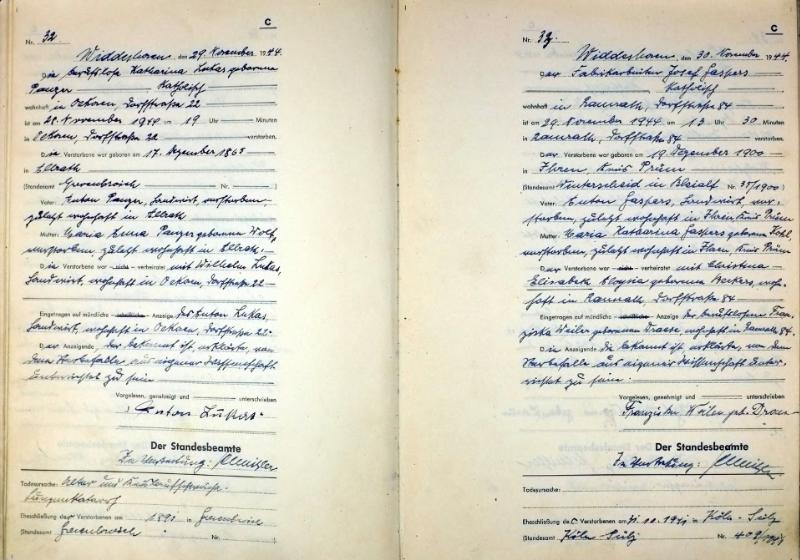 C
Nr. 32
Widdeshoven, den 29. November 1944.
Die berufslose Katharina Lukas geborene
Panzer Katholisch
wohnhaft in Oekoven, Dorfstraße 22
ist am 28. November 1944 um 19 Uhr Minuten
in Oekoven, Dorfstraße 22 verstorben.
Die Verstorbene war geboren am 17. Dezember 1865
in Ellrath
(Standesamt Grevenbroich Nr. )
Vater: Anton Panzer, Landwirt, verstorben,
zuletzt wohnhaft in Ellrath
Mutter: Maria Anna Panzer geborene Wolf,
verstorben, zuletzt wohnhaft in Ellrath.
Die Verstorbene war nicht verheiratet mit Wilhelm Lukas,
Landwirt, wohnhaft in Oekoven, Dorfstraße 22
Eingetragen auf mündliche schriftliche Anzeige des Anton Lukas,
Landwirt, wohnhaft in Oekoven, Dorfstraße 22.
Der Anzeigende, der bekannt ist, erklärte, von
dem Sterbefalle aus eigener Wissenschaft
unterrichtet zu sein
Vorgelesen, genehmigt und unterschrieben
Anton Lukas
Der Standesbeamte
In Vertretung:
Todesursache: Alter und Kreislaufschwäche
Lungenkatarrh
Eheschließung der Verstorbenen am 1891 in Grevenbroich
(Standesamt Grevenbroich Nr. )
C
Nr. 33
Widdeshoven, den 30. November 1944.
Der Fabrikarbeiter Josef Gaspers
Katholisch
wohnhaft in Ramrath, Dorfstraße 84
ist am 29. November 1944 um 13 Uhr 30 Minuten
in Ramrath, Dorfstraße 84 verstorben.
Der Verstorbene war geboren am 19. Dezember 1900
in Ihren, Kreis Prüm
(Standesamt Winterscheid in Bleialf Nr. 35/1900)
Vater: Anton Gaspers, Landwirt, ver-
storben, zuletzt wohnhaft in Ihren Kreis Prüm
Mutter: Maria Katharina Gaspers geborene
verstorben, zuletzt wohnhaft in Ihren, Kreis Prüm
Der Verstorbene war nicht verheiratet mit Christina
Elisabeth Aloysia geborene Beckers, wohn-
haft in Ramrath, Dorfstraße 84
Eingetragen auf mündliche schriftliche Anzeige der berufslosen Fran-
ziska Weiler geborenen Draese, wohnhaft in Ramrath 84.
Die Anzeigende die bekannt ist, erklärte, von dem
Sterbefalle aus eigener Wissenschaft unter-
richtet zu sein.
Vorgelesen, genehmigt und unterschrieben
Franziska Weiler geb.
Der Standesbeamte
In Vertretung:
Todesursache:
Eheschließung des Verstorbenen am 31.10. in Köln-Sülz
(Standesamt Köln-Sülz Nr.